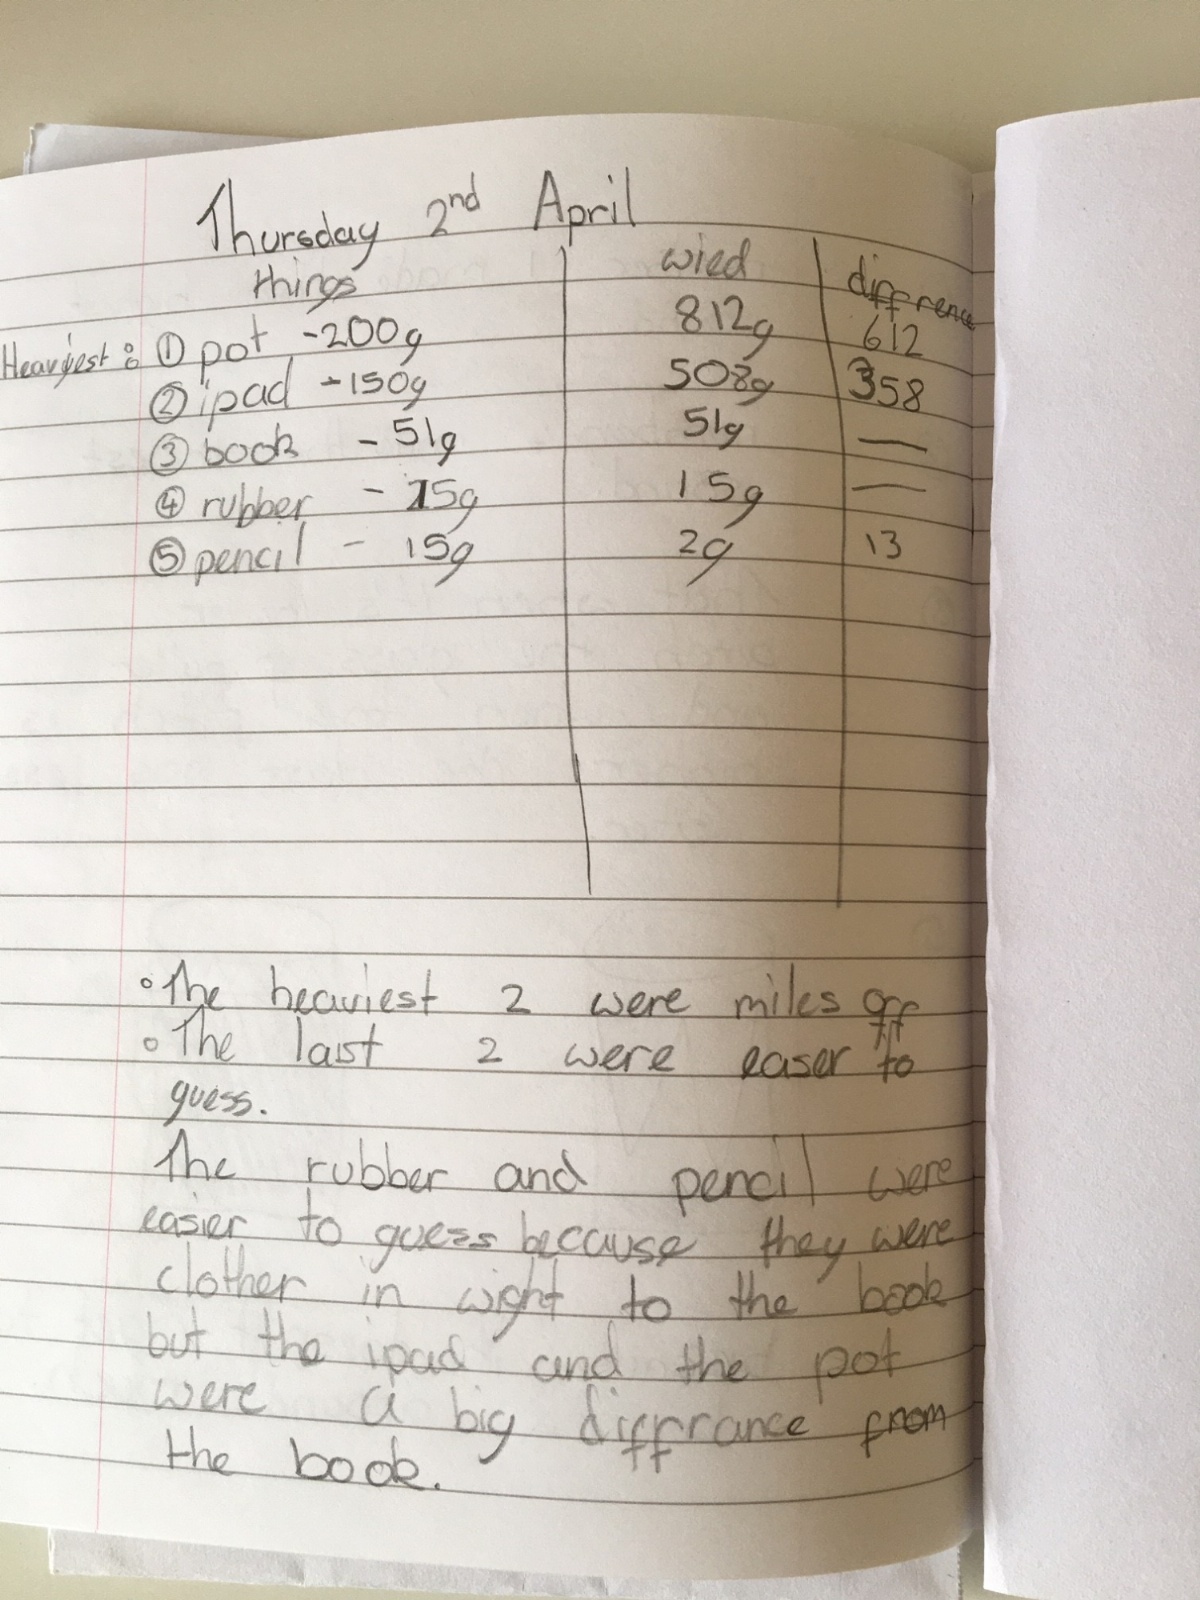 Thursday 2nd April
things wied diffrence
Heaviest: ① pot -200g 812g 612
② ipad -150g 508g 358
③ book - 51g 51g —
④ rubber - 15g 15g —
⑤ pencil - 15g 2g 13
• The heaviest 2 were miles off
• The last 2 were easer to
guess.
The rubber and pencil were
easier to guess because they were
clother in wight to the book
but the ipad and the pot
were a big diffrance from
the book.